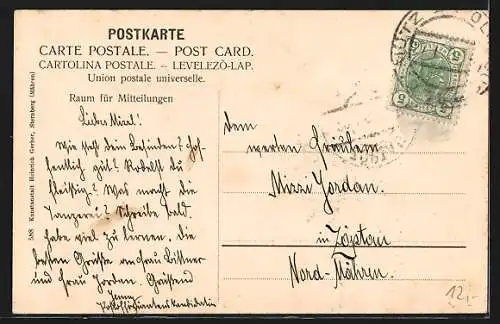 POSTKARTE
CARTE POSTALE. — POST CARD.
CARTOLINA POSTALE. — LEVELEZŐ-LAP.
Union postale universelle.
Raum für Mitteilungen
588 Kunstanstalt Heinrich Gerber, Sternberg (Mähren)
Liebes Mizal!
Wie steht dein Befinden? Hof-
fentlich gut? Robelst du
fleißig? Was macht die
Tanzerei? Schreibe bald.
habe viel zu lernen, die
besten Grüße an Frau Littner
und Frau Jordan. Grüßend
Jenny
Postoffiziantenkandidatin
dem
werten Fräulein
Mizzi Jordan.
in Zöptau
Nord-Mähren.
12,-
5
5